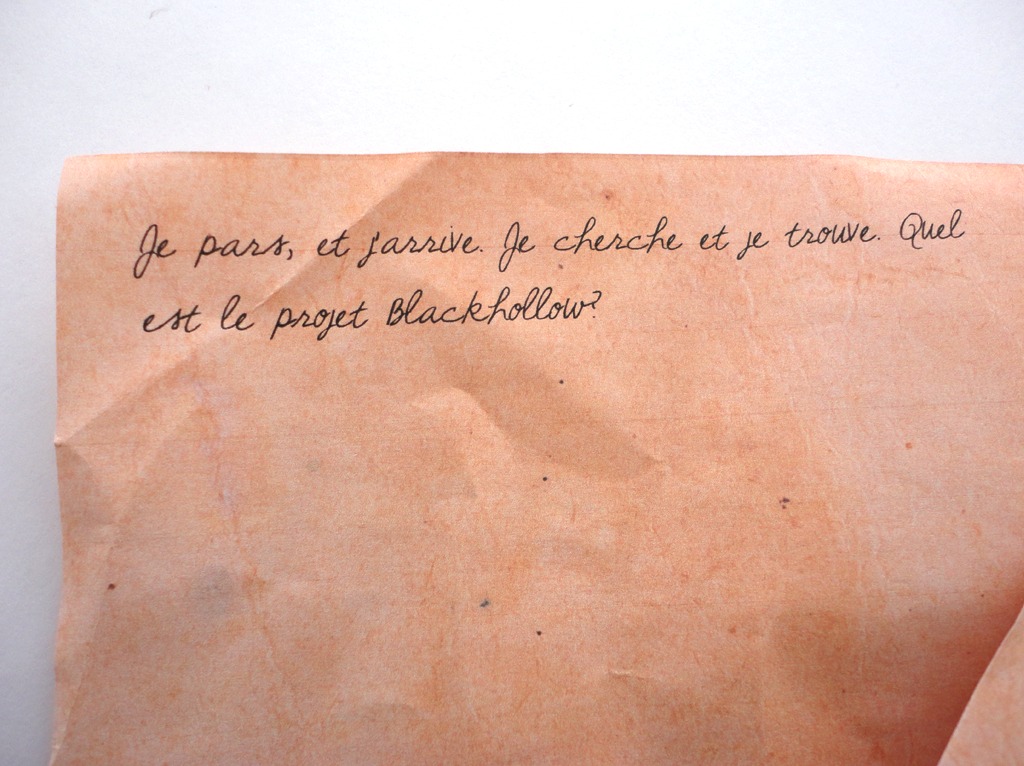 Je pars, et j'arrive. Je cherche et je trouve. Quel
est le projet Blackhollow?